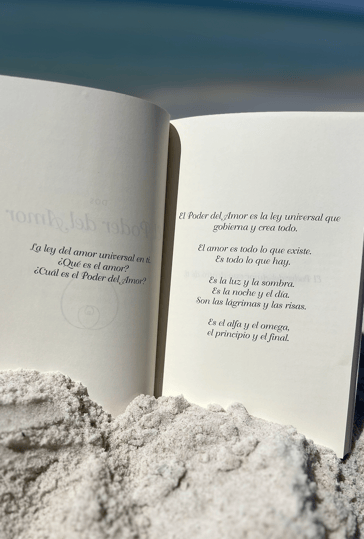 La ley del amor universal en ti.
¿Qué es el amor?
¿Cuál es el Poder del Amor?
El Poder del Amor es la ley universal que
gobierna y crea todo.
El amor es todo lo que existe.
Es todo lo que hay.
Es la luz y la sombra.
Es la noche y el día.
Son las lágrimas y las risas.
Es el alfa y el omega,
el principio y el final.